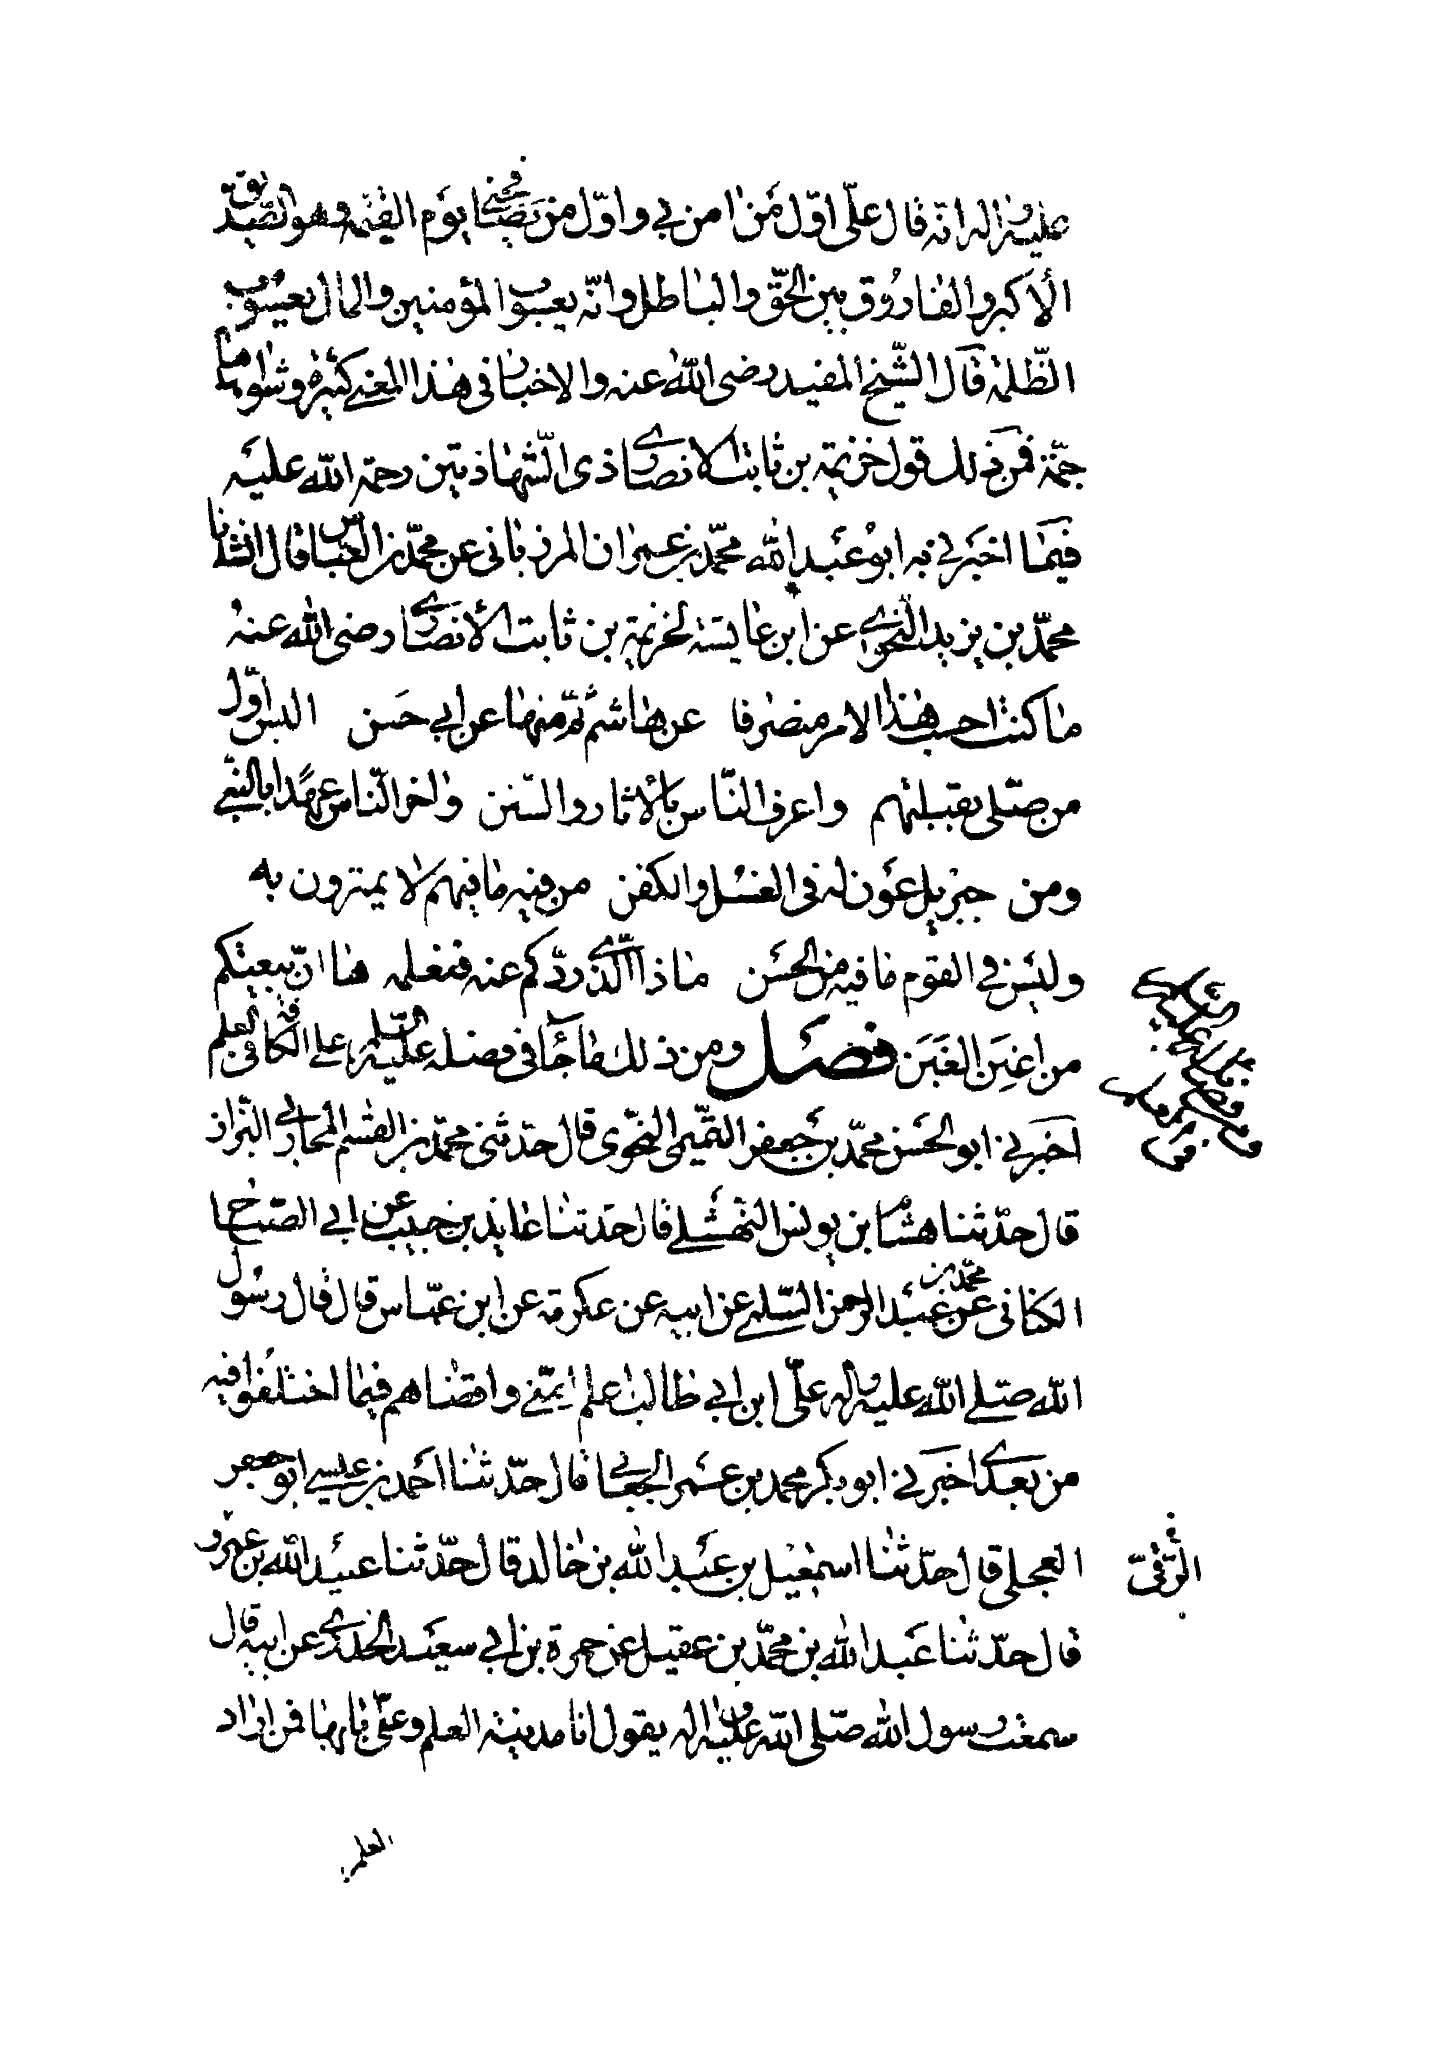 عليه واله انه قال علّى اوّل مَن امن بي واوّل من يصافحنى يوَم القيمة وهو الصّديق
الأكبر والفاروق بين الحقّ والباطل وانّه يعسوب المؤمنين والمال يعسُوب
الظّلمة قال الشّيخ المفيد رضى اللّه عنه والاخبار فى هذا المعنى كثيرة وشواهدها
جمّة فمن ذلك قول خزيمة بن ثابت الانصارى ذى الشّهاذتين رحمة اللّه عليه
فيما اخبرني به ابو عبد اللّه محمّد بن عمران المرزبانى عن محمّد بن العبّاس قال انشدنا
محمّد بن يزيد النّحوى عن ابن عايشة لخزيمة بن ثابت الأنصارى رضى اللّه عنه
ما كنت احسب هذا الامر منصرفا عن هاشم ثمّ منها عن ابي حسن اليس اوّل
من صلّى بقبلتهم واعرف النّاس بالأثار والسّنن واخر النّاس عهدًا بالنّبي
ومن جبريل عون له فى الغسل والكفن من فيه ما فيهم لا يمترون به
وليس في القوم ما فيه من الحسن ماذا الّذى ردّكم عنه فنعلمه ها انّ بيعتكم
من اغبن الغبن فصل ومن ذلك ما جآء فى فضله عليه السّلم على الكافّة فى العلم
اخبرني ابو الحسن محمّد بن جعفر التّميمى النحوى قال حدثنى محمّد بن القسم المحاربى البزاز
قال حدّثنا هشام بن يونس النّهشلي قال حدثنا عايذ بن حبيب عن ابي الصّباح
الكنانى عن محمّد بن عبد الرحمن السّلمي عن ابيه عن عكرمة عن ابن عبّاس قال قال رسول
اللّه صلّى اللّه عليه واله علّى ابن ابي طالب اعلم امّتي واقضاهم فيما اختلفوا فيه
من بعدى اخبرني ابو بكر محمد بن عمر الجعابى قال حدّثنا احمد بن عيسى ابو جعفر
العجلى قال حدّثنا اسمعيل بن عبد اللّه بن خالد قال حدّثنا عبيد اللّه بن عمرو
الرّقىّ
قال حدّثنا عبد اللّه بن محمّد بن عقيل عن حمزة بن ابي سعيد الخدرى عن ابيه قال
سمعت رسول اللّه صلّى اللّه عليه واله يقول انا مدينة العلم وعلّى بابها فمن اراد
العلم